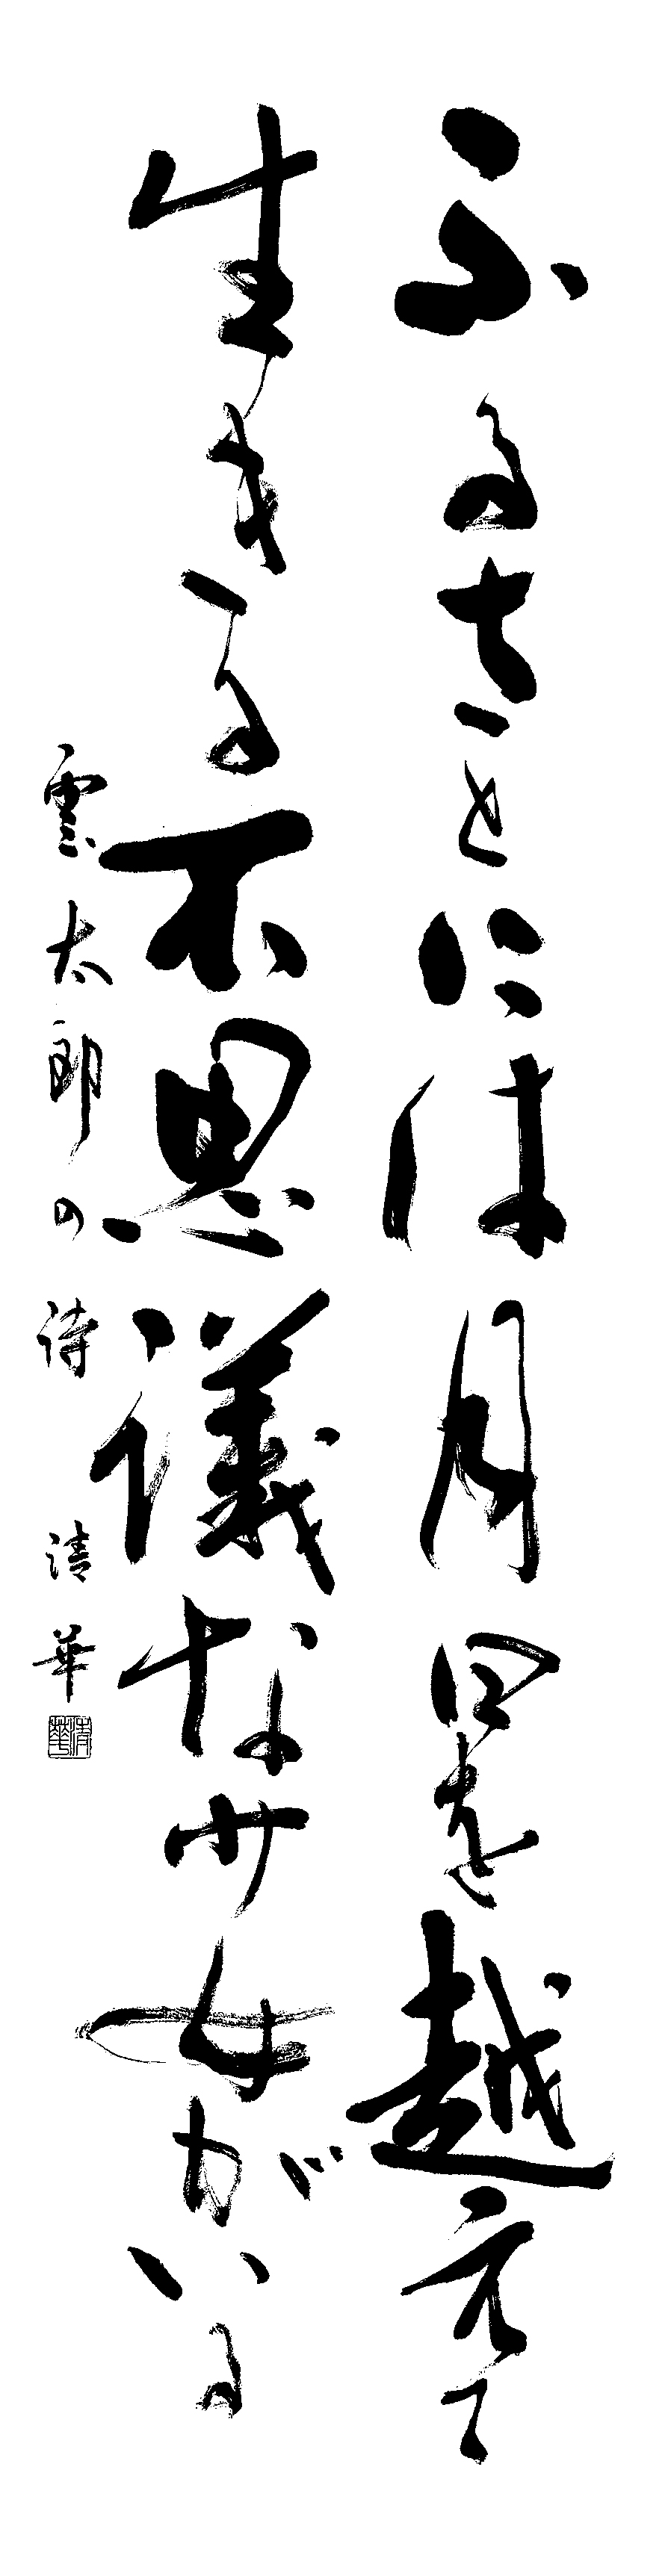 ふるさとには月日を越えて
生きる不思儀な少女がいる
雲太郎の詩 清華
清華